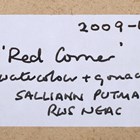 2009-
'Red Corner'
watercolour + gouac
SALLIANN PUTMA
RWS NEAC